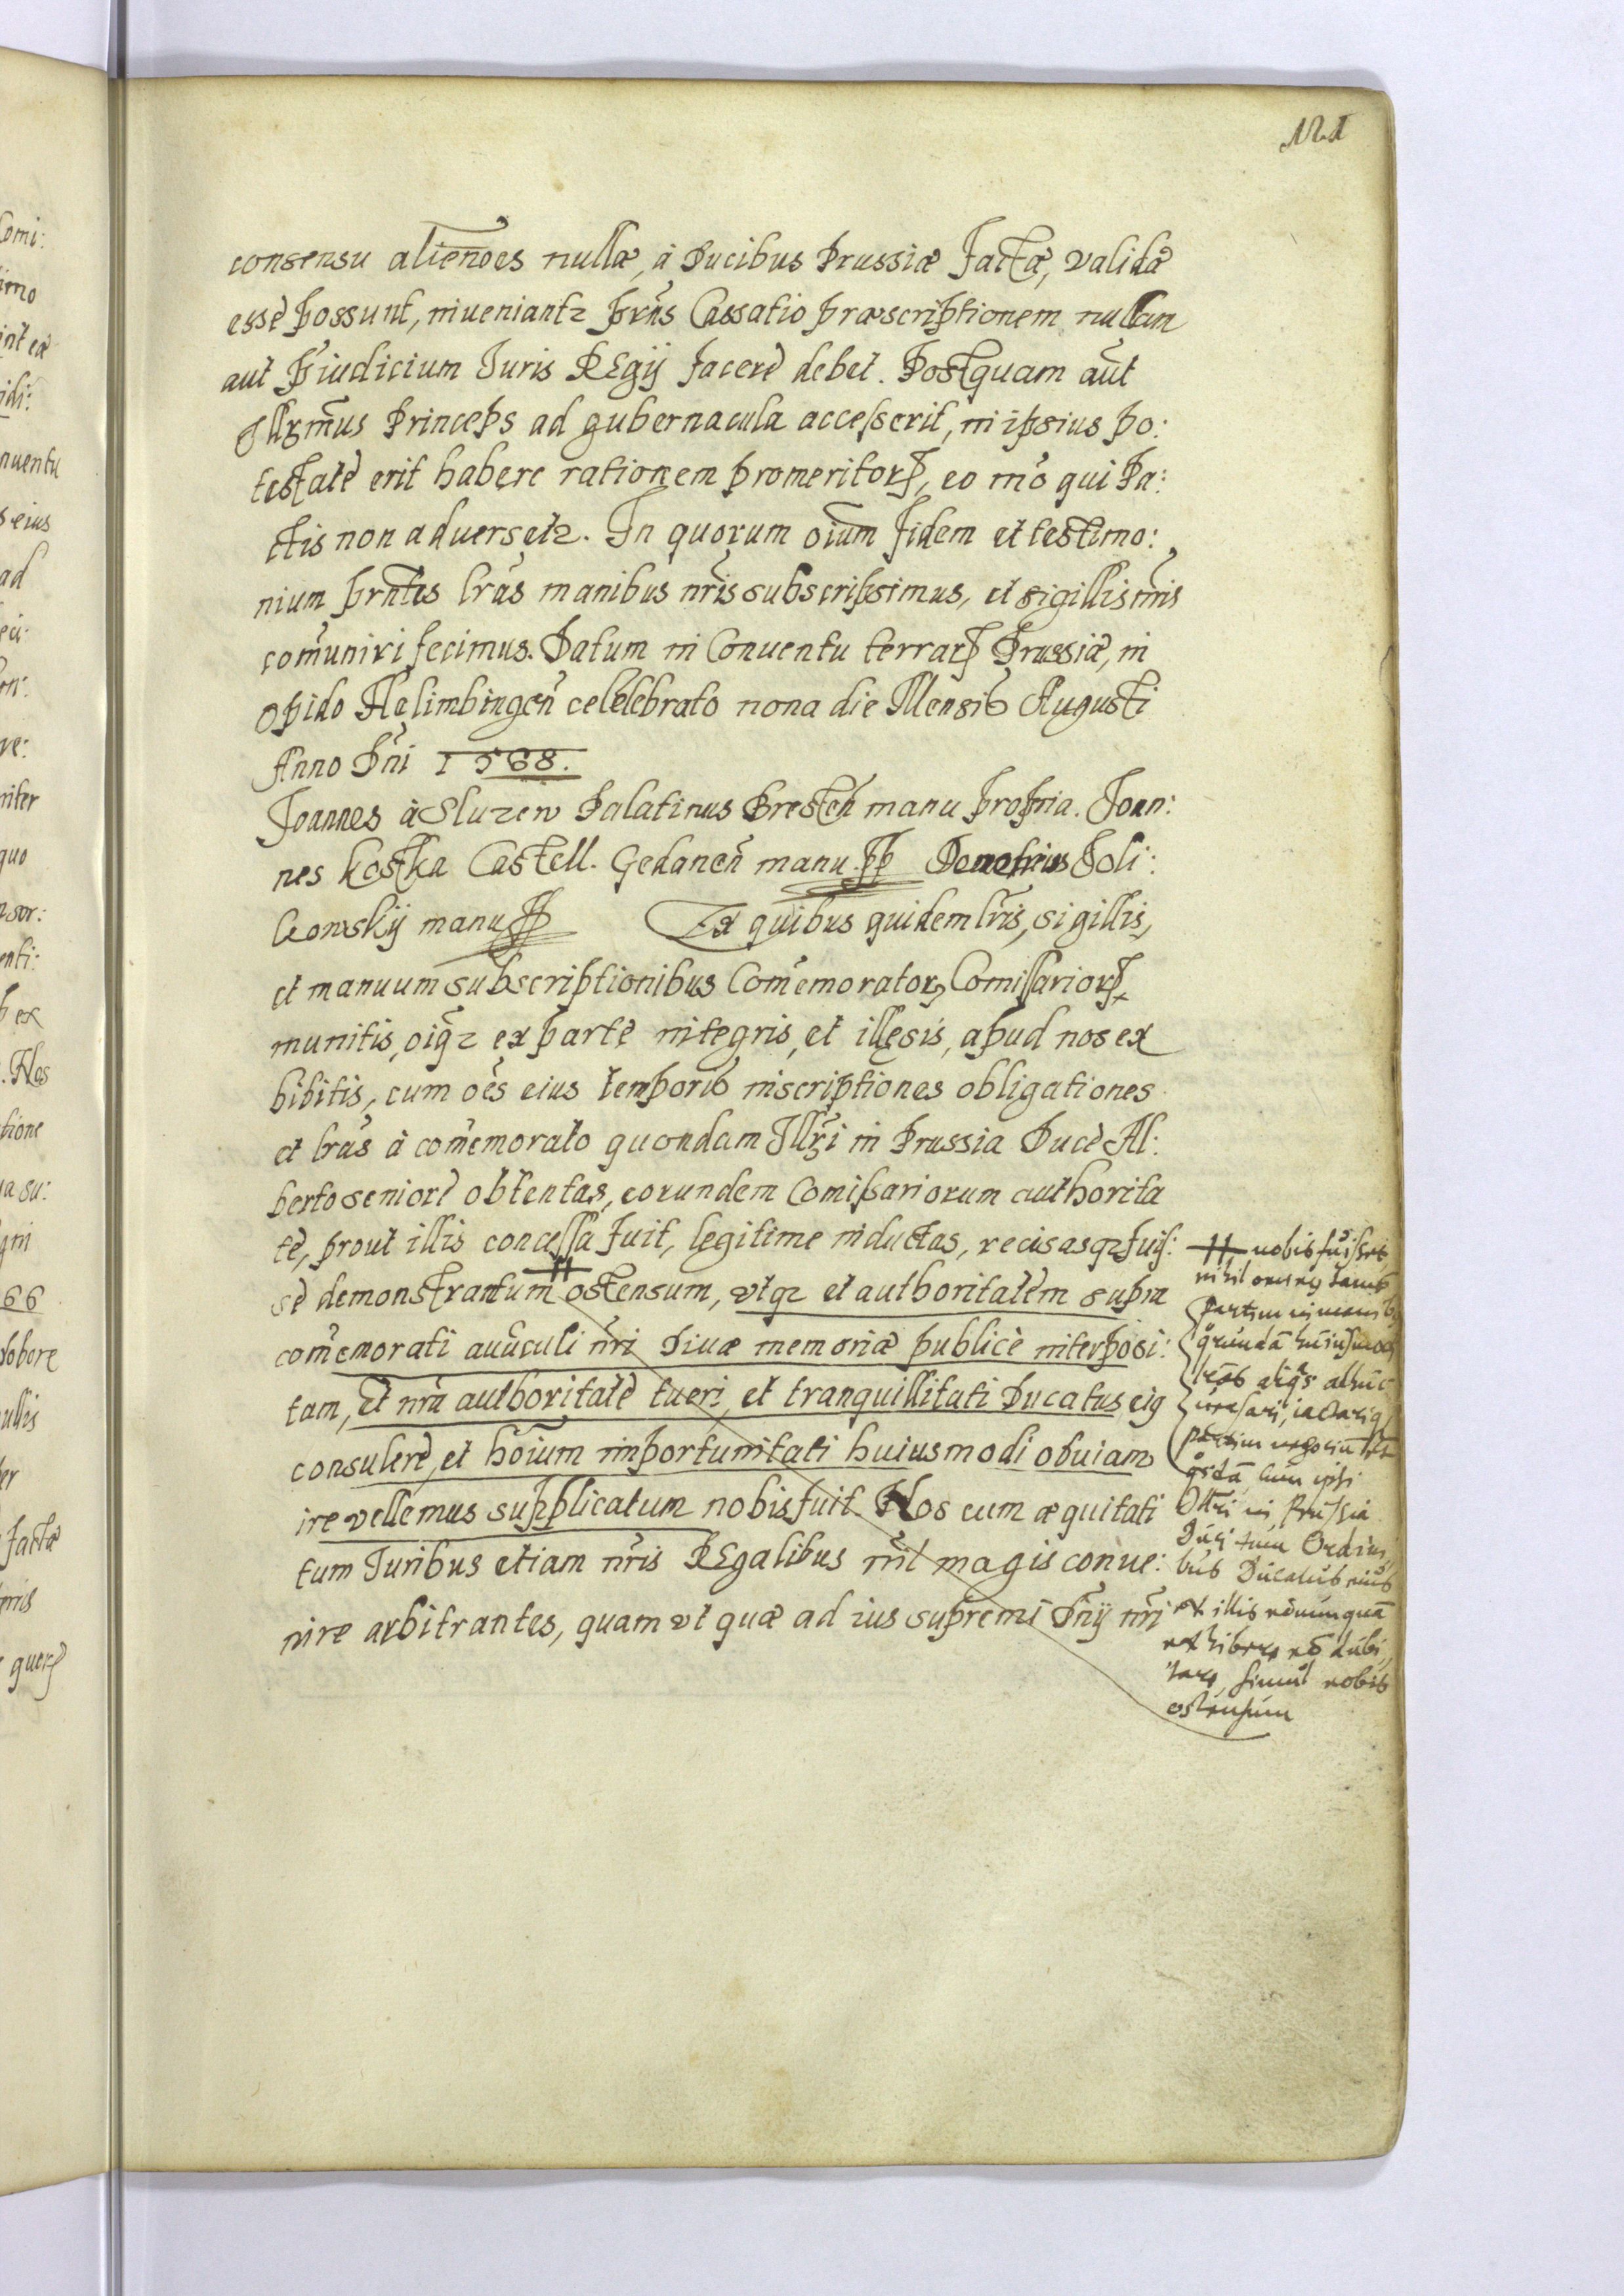 121
consensu alienōes nullæ, à Ducibus Prussiæ factæ, validæ
esse possunt, inueniantz prns Cassatio præscriptionem nullam
aut Piudicium Iuris REgij facere debet. Postquam aūt
Illrmus Princeps ad gubernacula accesserit, in ipsius po:
testate erit habere rationem promeritorꝝ, eo mō qui Pa:
ctis non aduersetz. In quorum oīum fidem et testimo:
nium prntes lrās manibus nrīs subscripsimus, et sigillis nrīs
com̄uniri fecimus. Datum in Conuentu terrarꝝ Prussiæ, in
opido Helimbingen̄ celelebrato nona die Mensis Augusti
Anno Dn̄i 1568.
Joannes à Sluzew Palatinus Bresten̄ manu propria. Joan:
nes Kostka Castell. Gedanen̄ manu pp Demetrius Soli:
kowskij manu pp Ex quibus quidem lrīs, sigillis,
et manuum subscriptionibus Com̄emoratorꝝ Comissariorꝝ
munitis, oīqz ex parte integris, et illęsis, apud nos ex
bibitis, cum oēs eius temporis inscriptiones obligationes
et lrās à com̄emorato quondam Illrī in Prussia Duce Al:
berto seniore obtentas, eorundem Comissariorum authorita
te, prout illis concessa fuit, legitime inductas, recisasqz fuis:
se demonstrantum # ostensum, vtqz et authoritatem supra
com̄emorati auūculi nrī Diuæ memoriæ publicè interposi:
tam, Et nrā authoritate tueri, et tranquillitati Ducatus eiꝯ
consulere, et hoīum importunitati huiusmodi obuiam
ire vellemus supplicatum nobis fuit. Nos cum æquitati
tum Iuribus etiam nrīs REgalibus nīl magis conue:
nire arbitrantes, quam vt quæ ad ius supremi Dn̄ij nrī
# nobis fuisset
nihil tamē
partim in manibꝯ
qrundā huiusmodi
lrās aliqs adhuc
iactariqꝫ
partim negociū
qddā cum ipsi
Illri in Prussia
Duci tum Ordini
bus Ducatus eius
ex illis nōnunquā
exhibere nō dubi,,
tare, simul nobis
ostensum